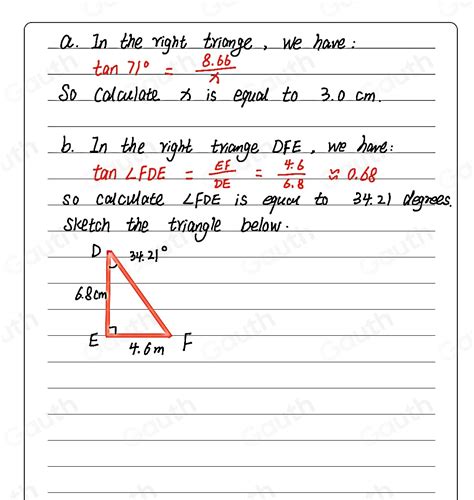 a. In the right triange, we have:
tan 71° = 8.66/x
So Calculate x is equal to 3.0 cm.
b. In the right triange DFE, we have:
tan ∠FDE = EF/DE = 4.6/6.8 ≈ 0.68
so calculate ∠FDE is equal to 34.21 degrees.
Sketch the triangle below.
D 34.21°
6.8cm
E 4.6m F